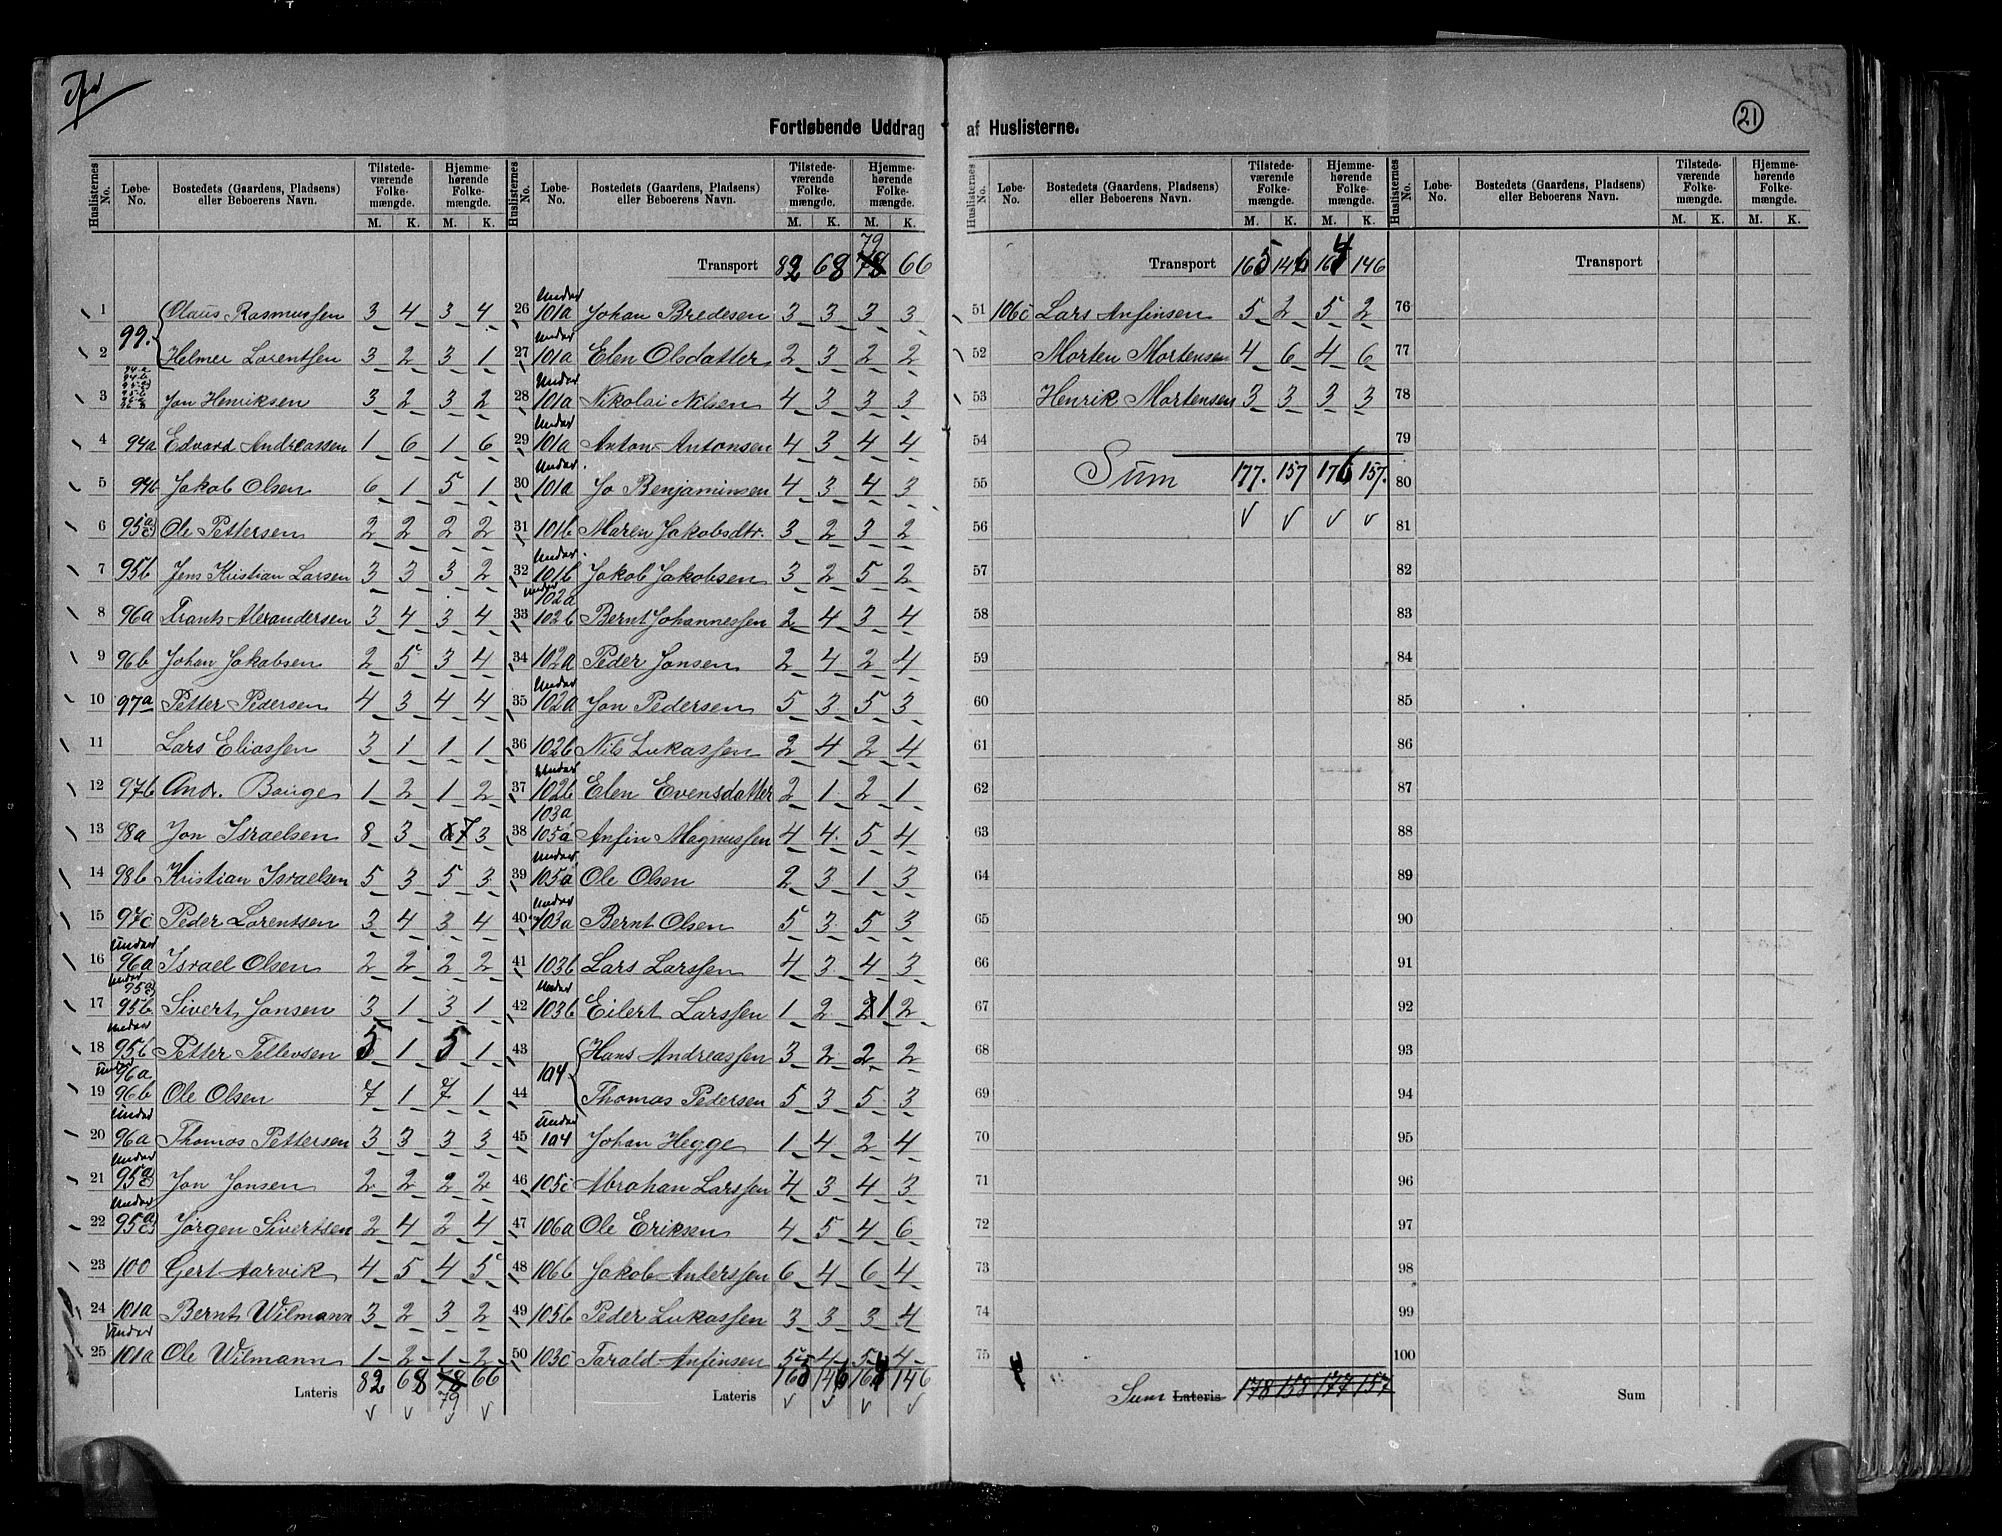 Fortløbende Uddrag af Huslisterne.
21
Huslisternes No. Løbe-No. Bostedets (Gaardens, Pladsens) eller Beboerens Navn. Tilstedeværende Folkemængde. M. K. Hjemmehørende Folkemængde. M. K.
1 99. Olaus Rasmussen 3 4 3 4
2 Helmer Lorentsen 3 2 3 1
3 Jon Henriksen 3 2 3 2
4 94a Edvard Andreassen 1 6 1 6
5 94b Jakob Olsen 6 1 5 1
6 95a Ole Pettersen 2 2 2 2
7 95b Jens Kristian Larsen 3 3 3 2
8 96a Frants Alexandersen 3 4 3 4
9 96b Johan Jakobsen 2 5 3 4
10 97a Petter Pedersen 4 3 4 4
11 Lars Eliassen 3 1 1 1
12 97b Andr. Bauge 1 2 1 2
13 98a Jon Israelsen 8 3 7 3
14 98b Kristian Israelsen 5 3 5 3
15 97c Peder Lorentsen 3 4 3 4
16 Under 96a Israel Olsen 2 2 2 2
17 Under 95b Sivert Jonsen 3 1 3 1
18 Under 95b Petter Tellevsen 5 1 5 1
19 Under 96a 96b Ole Olsen 7 1 7 1
20 Under 96a Thomas Pettersen 3 3 3 3
21 Under 95a Jon Jonsen 2 2 2 2
22 Under 95a Jørgen Sivertsen 2 4 2 4
23 100 Gert Aarvik 4 5 4 5
24 101a Bernt Wilmann 3 2 3 2
25 Under 101a Ole Wilmann 1 2 1 2
Lateris 82 68 78 66
79
Huslisternes No. Løbe-No. Bostedets (Gaardens, Pladsens) eller Beboerens Navn. Tilstedeværende Folkemængde. M. K. Hjemmehørende Folkemængde. M. K.
79
Transport 82 68 78 66
26 Under 101a Johan Bredesen 3 3 3 3
27 Under 101a Elen Olsdatter 2 3 2 2
28 Under 101a Nikolai Nilsen 4 3 3 3
29 Under 101a Anton Antonsen 4 3 4 4
30 Under 101a Jo Benjaminsen 4 3 4 3
31 101b Maren Jakobsdtr. 3 2 3 2
32 Under 101b Jakob Jakobsen 3 2 5 2
33 Under 102a 102b Bernt Johannessen 2 4 3 4
34 102a Peder Jonsen 2 4 2 4
35 Under 102a Jon Pedersen 5 3 5 3
36 102b Nils Lukassen 2 4 2 4
37 Under 102b Elen Evensdatter 2 1 2 1
38 103a 105a Anfin Magnussen 4 4 5 4
39 Under 105a Ole Olsen 2 3 1 3
40 Under 103a Bernt Olsen 5 3 5 3
41 103b Lars Larssen 4 3 4 3
42 Under 103b Eilert Larssen 1 2 1 2
43 104 Hans Andreassen 3 2 2 2
44 Thomas Pedersen 5 3 5 3
45 Under 104 Johan Hegge 1 4 2 4
46 105c Abrahan Larssen 4 3 4 3
47 106a Ole Eriksen 4 5 4 6
48 106b Jakob Anterssen 6 4 6 4
49 105b Peder Lukassen 3 3 3 4
50 103c Tarald Anfinsen 5 4 5 4
Lateris 165 146 164 146
Huslisternes No. Løbe-No. Bostedets (Gaardens, Pladsens) eller Beboerens Navn. Tilstedeværende Folkemængde. M. K. Hjemmehørende Folkemængde. M. K.
Transport 165 146 164 146
51 106c Lars Anfinsen 5 2 5 2
52 Morten Mortensen 4 6 4 6
53 Henrik Mortensen 3 3 3 3
54
55 Sum 177. 157 176 157.
56
57
58
59
60
61
62
63
64
65
66
67
68
69
70
71
72
73
74
75
Sum Lateris 178 158 177 157
Huslisternes No. Løbe-No. Bostedets (Gaardens, Pladsens) eller Beboerens Navn. Tilstedeværende Folkemængde. M. K. Hjemmehørende Folkemængde. M. K.
Transport
76
77
78
79
80
81
82
83
84
85
86
87
88
89
90
91
92
93
94
95
96
97
98
99
100
Sum